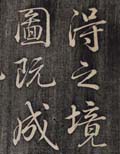 淂之境
圖既成